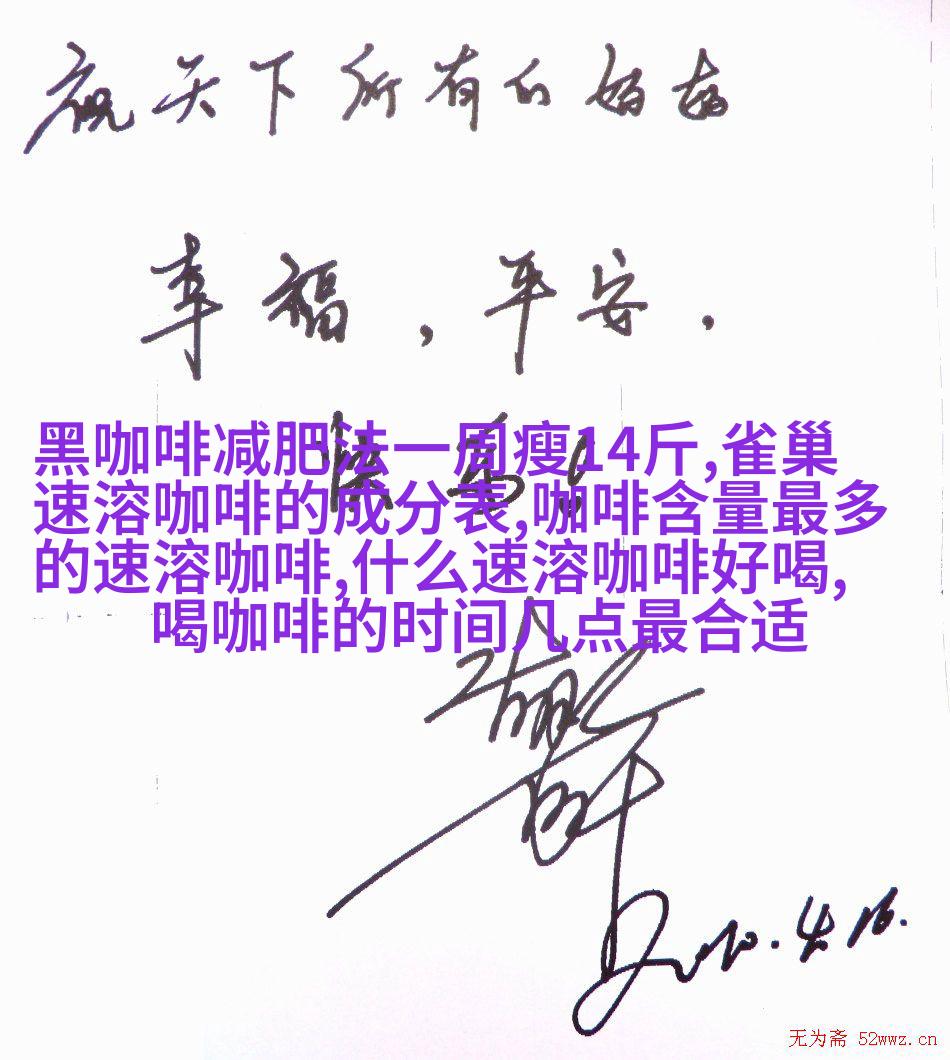 祝天下所有的妈妈
幸福，平安，
黑咖啡减肥法一周瘦14斤,雀巢
速溶咖啡的成分表,咖啡含量最多
的速溶咖啡,什么速溶咖啡好喝,
喝咖啡的时间几点最合适
2010.4.16.
无为斋 52wwz.cn